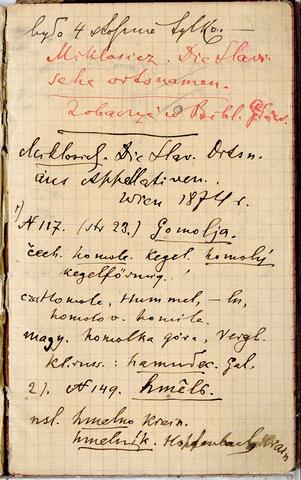 było 4 stopnie tylko.
Miklosicz. Die Slavi
sche ortsnamen.
Zobaczyć w Bibl. Główn.
Miklosich. Die Slav. Ortsn.
aus Appellativen.
Wien 1874 r.
1) N 117. (str 23.) Gomolja.
čech. homole. Kegel. homolý
kegelförmig!
homolov. homile.
magy. homolka góra, Vergl.
kl.russ.: hamułec. Gal.
2). N 149. hmêlь.
nsl. hmelno Krain.
hmelnik. Hopfenbach Krain